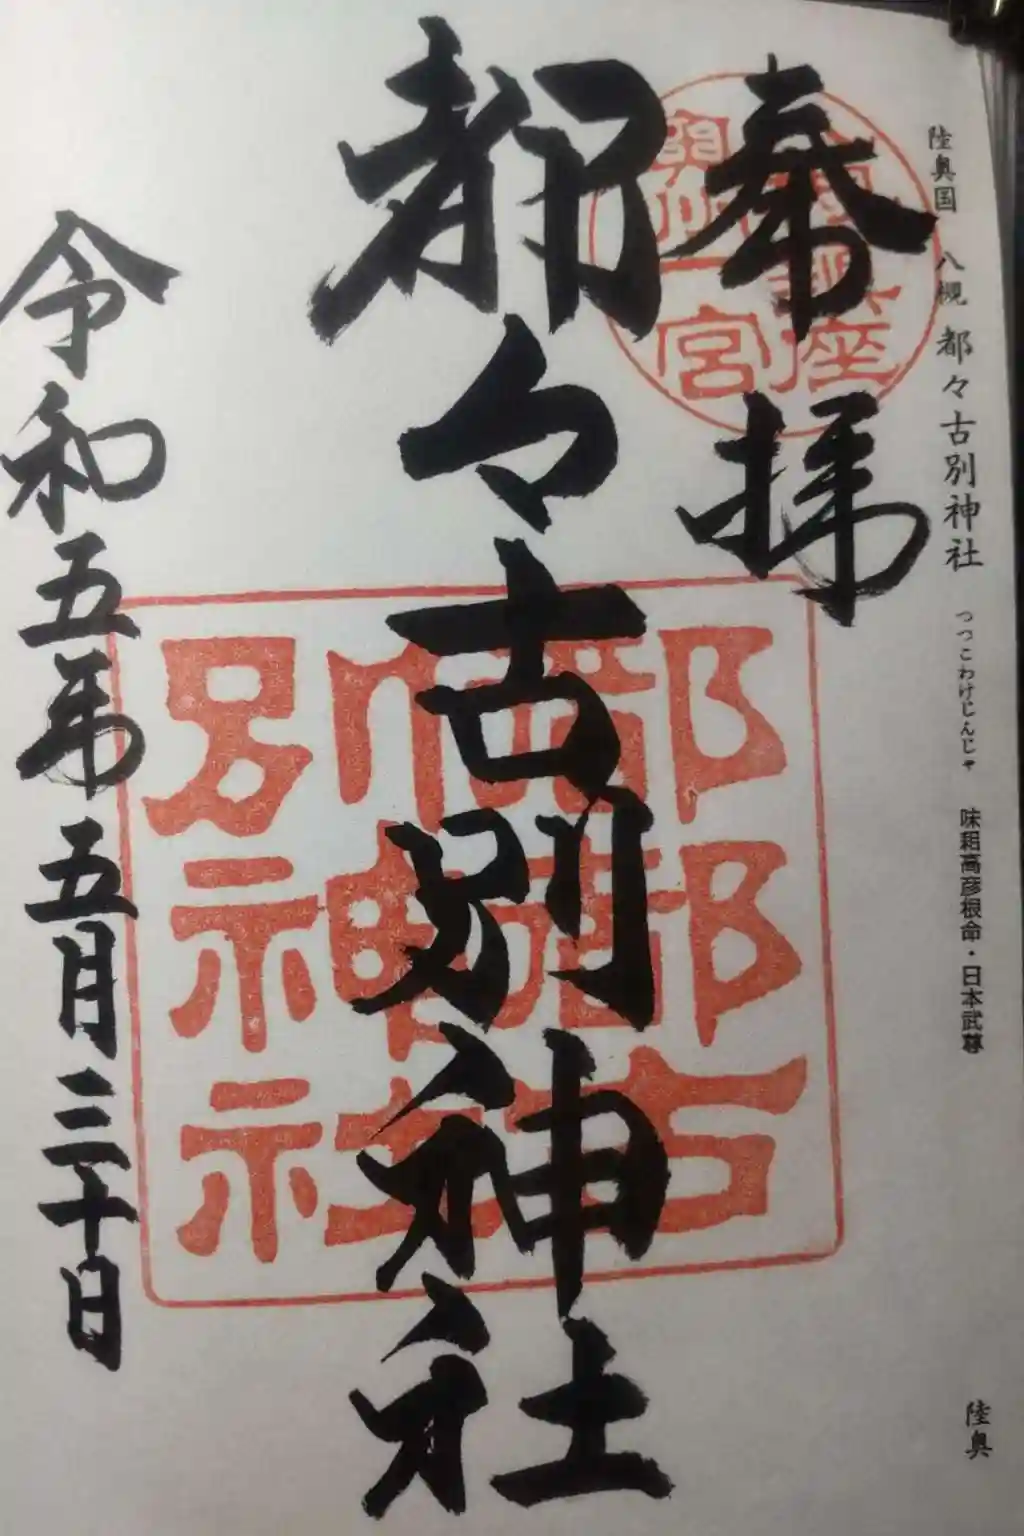 陸奥国 八槻 都々古別神社 つつこわけじんじゃ 味耜高彦根命・日本武尊
陸奥
奉拝
都々古別神社
令和五年五月三十日
奥州一宮
都都古
別神社